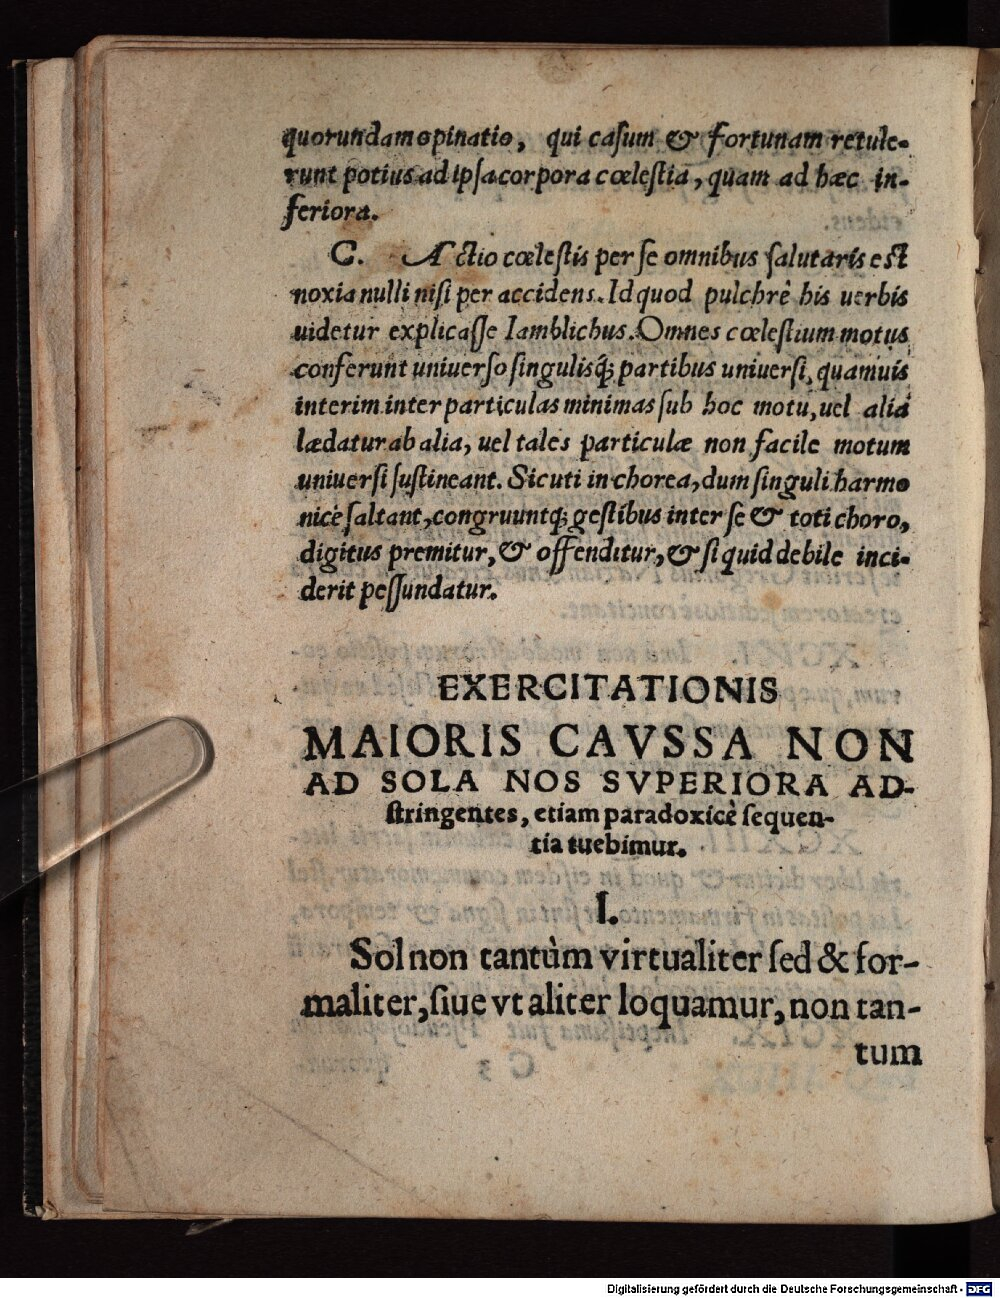 quorundam opinatio, qui casum & fortunam retule-
runt potius ad ipsa corpora cœlestia, quam ad hæc in-
feriora.
C. Actio cœlestis per se omnibus salutaris est
noxia nulli nisi per accidens. Id quod pulchrè his uerbis
uidetur explicasse Iamblichus. Omnes cœlestium motus
conferunt uniuerso singulisq́; partibus uniuersi, quamuis
interim inter particulas minimas sub hoc motu, uel alia
lædatur ab alia, uel tales particulæ non facile motum
uniuersi sustineant. Sicuti in chorea, dum singuli harmo
nicè saltant, congruuntq́; gestibus inter se & toti choro,
digitus premitur, & offenditur, & si quid debile inci-
derit pessundatur.
EXERCITATIONIS
MAIORIS CAVSSA NON
AD SOLA NOS SVPERIORA AD-
stringentes, etiam paradoxicè sequen-
tia tuebimur.
I.
Sol non tantùm virtualiter sed & for-
maliter, siue vt aliter loquamur, non tan-
tum
Digitalisierung gefördert durch die Deutsche Forschungsgemeinschaft - DFG